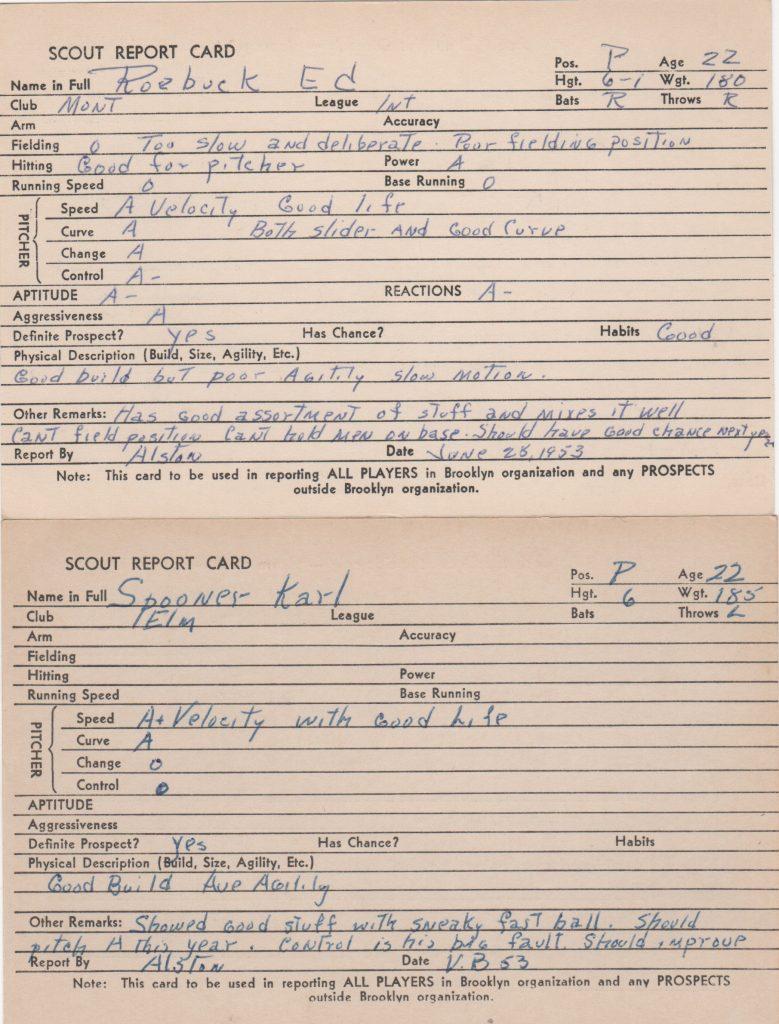 SCOUT REPORT CARD
Pos. P Age 22
Name in Full Roebuck Ed Hgt. 6-1 Wgt. 180
Club MONT League Int Bats R Throws R
Arm Accuracy
Fielding O Too slow and deliberate. Poor fielding position
Hitting Good for pitcher Power A
Running Speed O Base Running O
PITCHER
Speed A Velocity Good life
Curve A Both slider AND Good Curve
Change A
Control A-
APTITUDE A- REACTIONS A-
Aggressiveness A
Definite Prospect? yes Has Chance? Habits Good
Physical Description (Build, Size, Agility, Etc.)
Good build but poor Agitily slow motion.
Other Remarks: Has Good assortment of stuff and mixes it well
Cant field position Cant hold men on base. Should have Good chance next year
Report By Alston Date June 28, 1953
Note: This card to be used in reporting ALL PLAYERS in Brooklyn organization and any PROSPECTS
outside Brooklyn organization.
SCOUT REPORT CARD
Pos. P Age 22
Name in Full Spooner Karl Hgt. 6 Wgt. 185
Club Elm League Bats Throws L
Arm Accuracy
Fielding
Hitting Power
Running Speed Base Running
PITCHER
Speed A+ Velocity with Good Life
Curve A
Change O
Control O
APTITUDE
Aggressiveness
Definite Prospect? yes Has Chance? Habits
Physical Description (Build, Size, Agility, Etc.)
Good Build Ave Agility
Other Remarks: Showed Good stuff with sneaky fast ball. Should
pitch A this year. Control is his big fault. Should improve
Report By Alston Date V.B 53
Note: This card to be used in reporting ALL PLAYERS in Brooklyn organization and any PROSPECTS
outside Brooklyn organization.